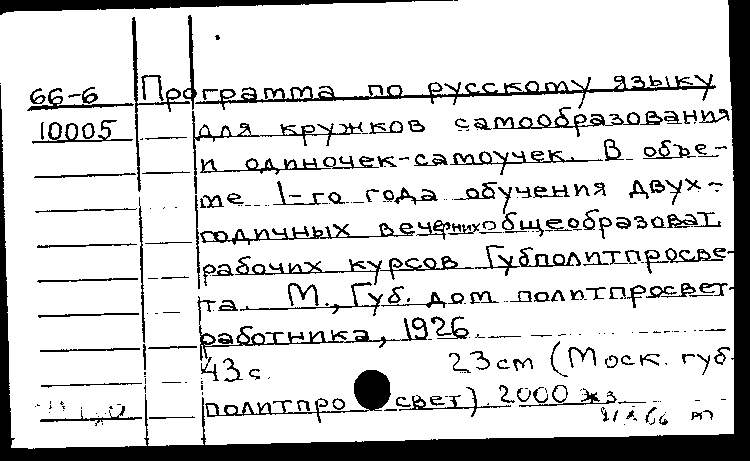 66-6 Программа по русскому языку
10005 для кружков самообразования
и одиночек-самоучек. В объе-
ме 1-го года обучения двух-
годичных вечерних общеобразоват.
рабочих курсов Губполитпросве-
та. М., Губ. дом политпросвет-
работника, 1926.
43с. 23cm (Моск. губ-
политпросвет). 2000 экз.